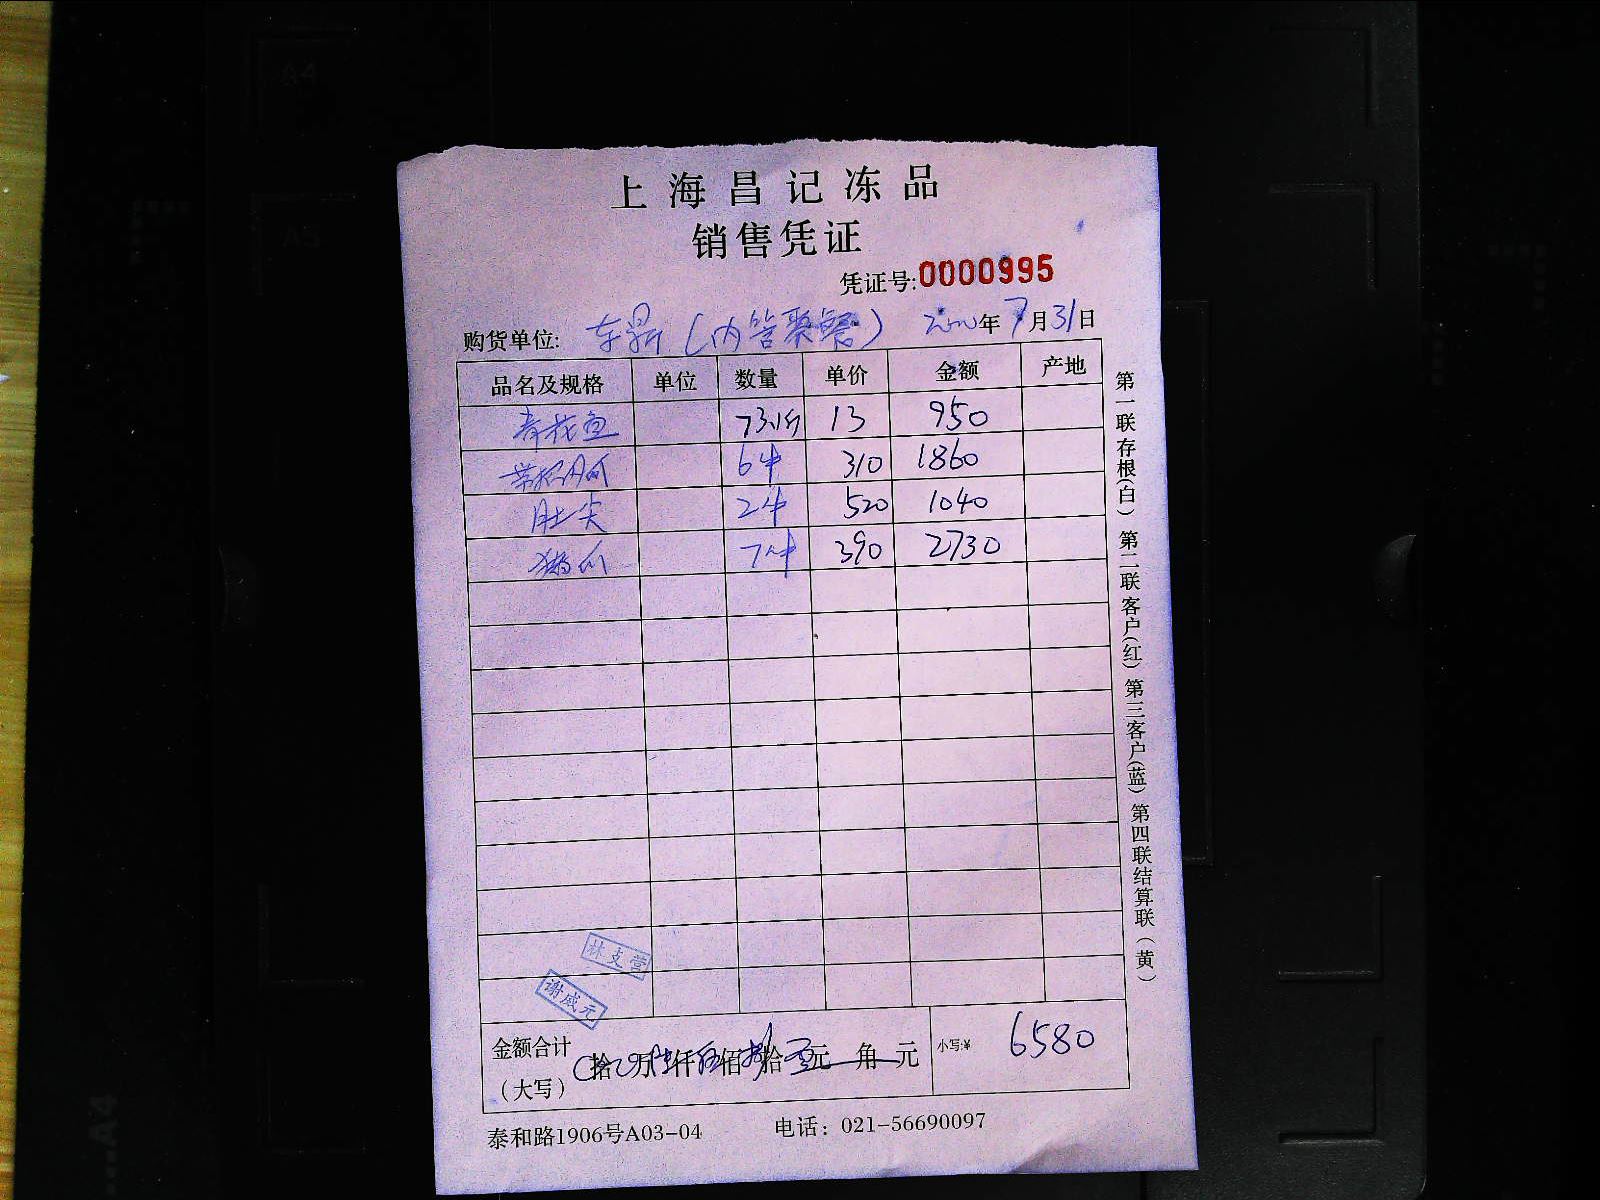 上海昌记冻品
销售凭证
凭证号:0000995
购货单位: 东昇(内管聚餐) 2020年7月31日
品名及规格 单位 数量 单价 金额 产地
青花鱼 73.1斤 13 950
6件 310 1860
肚尖 2件 520 1040
猪爪 7件 390 2730
林支营
谢成元
金额合计 拾 万陆仟伍佰捌拾零元 角 元 小写:¥ 6580
(大写)
泰和路1906号A03-04 电话：021-56690097
第一联存根(白) 第二联客户(红) 第三客户(蓝) 第四联结算联(黄)
A4
A5
A4